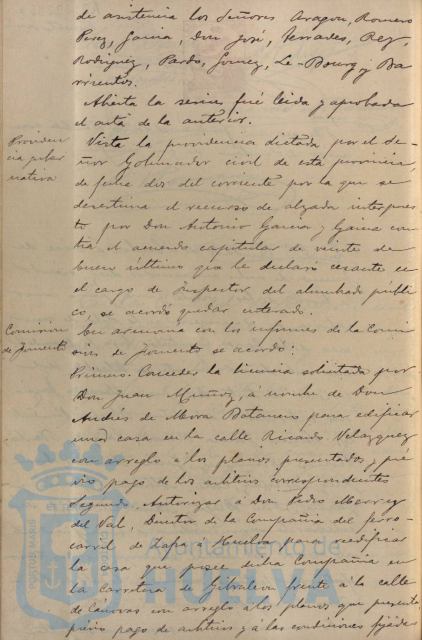 de asistencia los Señores Aragon, Romero
Perez, Garcia, Don José, Terrades, Rey,
Rodriguez, Pardo, Gomez, Le-Bourg y Ba
rrientos.
Abierta la sesion, fué leida y aprobada
el acta de la anterior.
Providen
cia guber
nativa
Vista la providencia dictada por el Se-
ñor Gobernador civil de esta provincia,
de fecha dos del corriente por la que se
desestima el recurso de alzada interpues
to por Don Antonio Garcia y Garcia con
tra el acuerdo capitular de veinte de
Enero último que le declaró cesante en
el cargo de Inspector del alumbrado públi
co, se acordó quedar enterado.
Comision
de Fomento
En armonia con los informes de la Comi
sion de Fomento se acordó:
Primero. Conceder la licencia solicitada por
Don Juan Muñoz, á nombre de Don
Andrés de Mora Batanero para edificar
una casa en la calle Ricardo Velazquez
con arreglo á los planos presentados y pré
vio pago de los arbitrios correspondientes
Segundo. Autorizar á Don Pedro Monroy
del Val, Director de la Compañia del ferro-
carril de Zafra á Huelva para reedificar
la casa que posee dicha Compañia en
la carretera de Gibraleon frente á la calle
de Cánovas con arreglo á los planos que presenta
prévio pago de arbitrios y á las condiciones fijadas
PORTUS MARIS
Ayuntamiento de
HUELVA